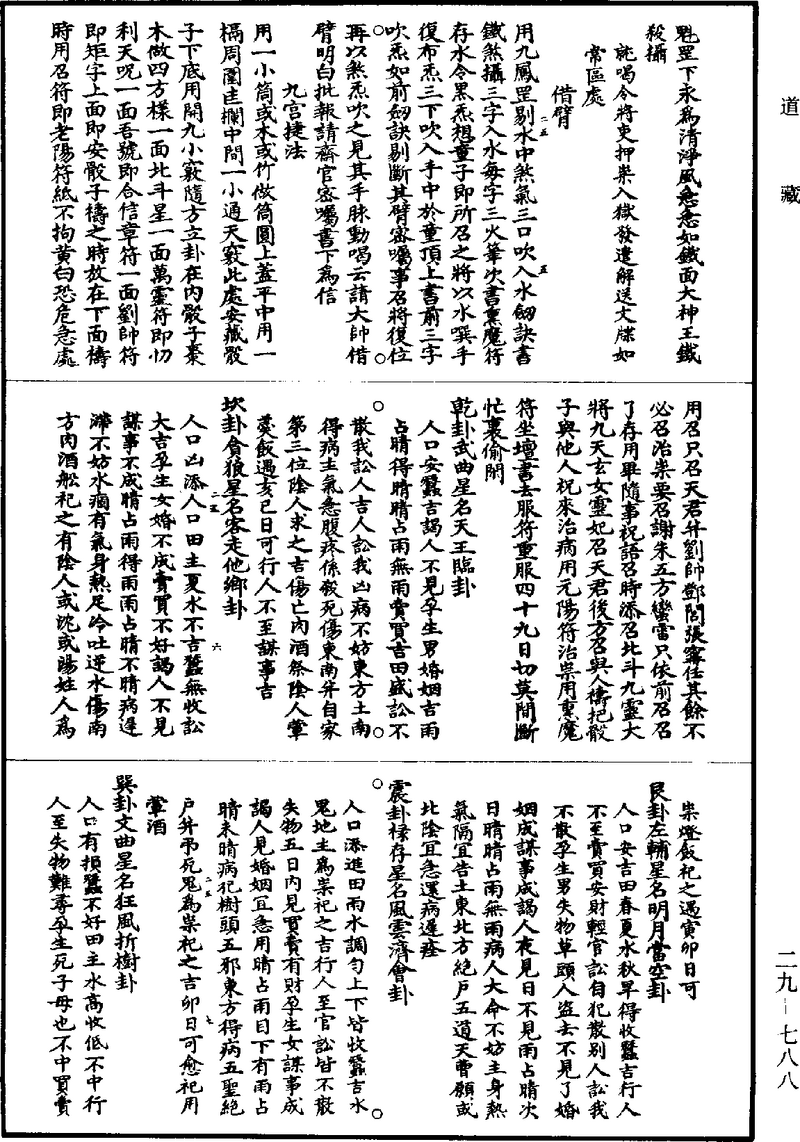 道藏
魁罡下永爲清淨風急急如鐵面大神王鐵
殺攝
說喝令將吏押祟入獄發遣解送文牒如
常區處
借臂
用九鳳罡剔水中煞氣三口吹入水劒訣書
鐵煞攝三字入水每字三火筆次書熏魔符
存水令黑炁想童子即所召之將以水噀手
復布炁三下吹入手中於童頂上書前三字
吹炁如前劒訣剔斷其臂密囑事召將復位
再以煞炁吹之見其手脉動喝云請大帥借
臂明白批報請齋官密囑書下爲信
九宫捷法
用一小筒或木或竹做筒圓上蓋平中用一
槅周圍走欄中間一小通天竅此處安藏骰
子下底用開九小竅隨方立卦在内骰子棗
木做四方樣一面北斗星一面萬靈符即忉
利天呪一面吾號即合信章符一面劉帥符
即矩字上面即安骰子禱之時放在下面禱
時用召符即老陽符紙不拘黄白恐危急處
用召只召天君并劉帥鄧閻張寧任其餘不
必召治祟要召謝朱五方蠻雷只依前召召
了存用畢隨事祝語召時添召北斗九靈大
將九天玄女靈妃召天君後方召與人禱把骰
子與他人祝來治病用元陽符治祟用熏魔
符坐壇書去服符重服四十九日切莫間斷
忙裏偷閑
乾卦武曲星名天王臨卦
人口安蠶吉謁人不見孕生男婚姻吉雨
占晴得晴晴占雨無雨賣買吉田盛訟不
散我訟人吉人訟我凶病不妨東方土南
得病主氣急腹疼係殺死傷東南并自家
第三位陰人求之吉傷亡肉酒祭陰人葷
羹飯遇亥巳日可行人不至謀事吉
坎卦貪狼星名客走他鄉卦
人口凶添人口田主夏水不吉蠶無收訟
大吉孕生女婚不成賣買不好謁人不見
謀事不成晴占雨得雨雨占晴不晴病遲
滯不妨水痼有氣身熱足冷吐逆水傷南
方肉酒船祀之有陰人或沈或陽姓人爲
祟燈飯祀之遇寅卯日可
艮卦左輔星名明月當空卦
人口安吉田春夏水秋旱得收蠶吉行人
不至賣買安財輕官訟自犯散别人訟我
不散孕生男失物草頭人盗去不見了婚
姻成謀事成謁人夜見日不見雨占晴次
日晴晴占雨無雨病人大命不妨主身熱
氣隔宜告土東北方絶戸五道天曹願或
北陰宜急還病遲痊
震卦祿存星名風雲濟會卦
人口添進田雨水調勻上下皆收蠶吉水
鬼地主爲祟祀之吉行人至官訟皆不散
失物五日内見買賣有財孕生女謀事成
謁人見婚姻宜急用晴占雨目下有雨占
晴未晴病犯樹頭五邪東方得病五聖絶
戸并弔死鬼爲祟祀之吉卯日可愈祀用
葷酒
巽卦文曲星名狂風折樹卦
人口有損蠶不好田主水高收低不中行
人至失物難尋孕生死子母也不中買賣
二九—七八八